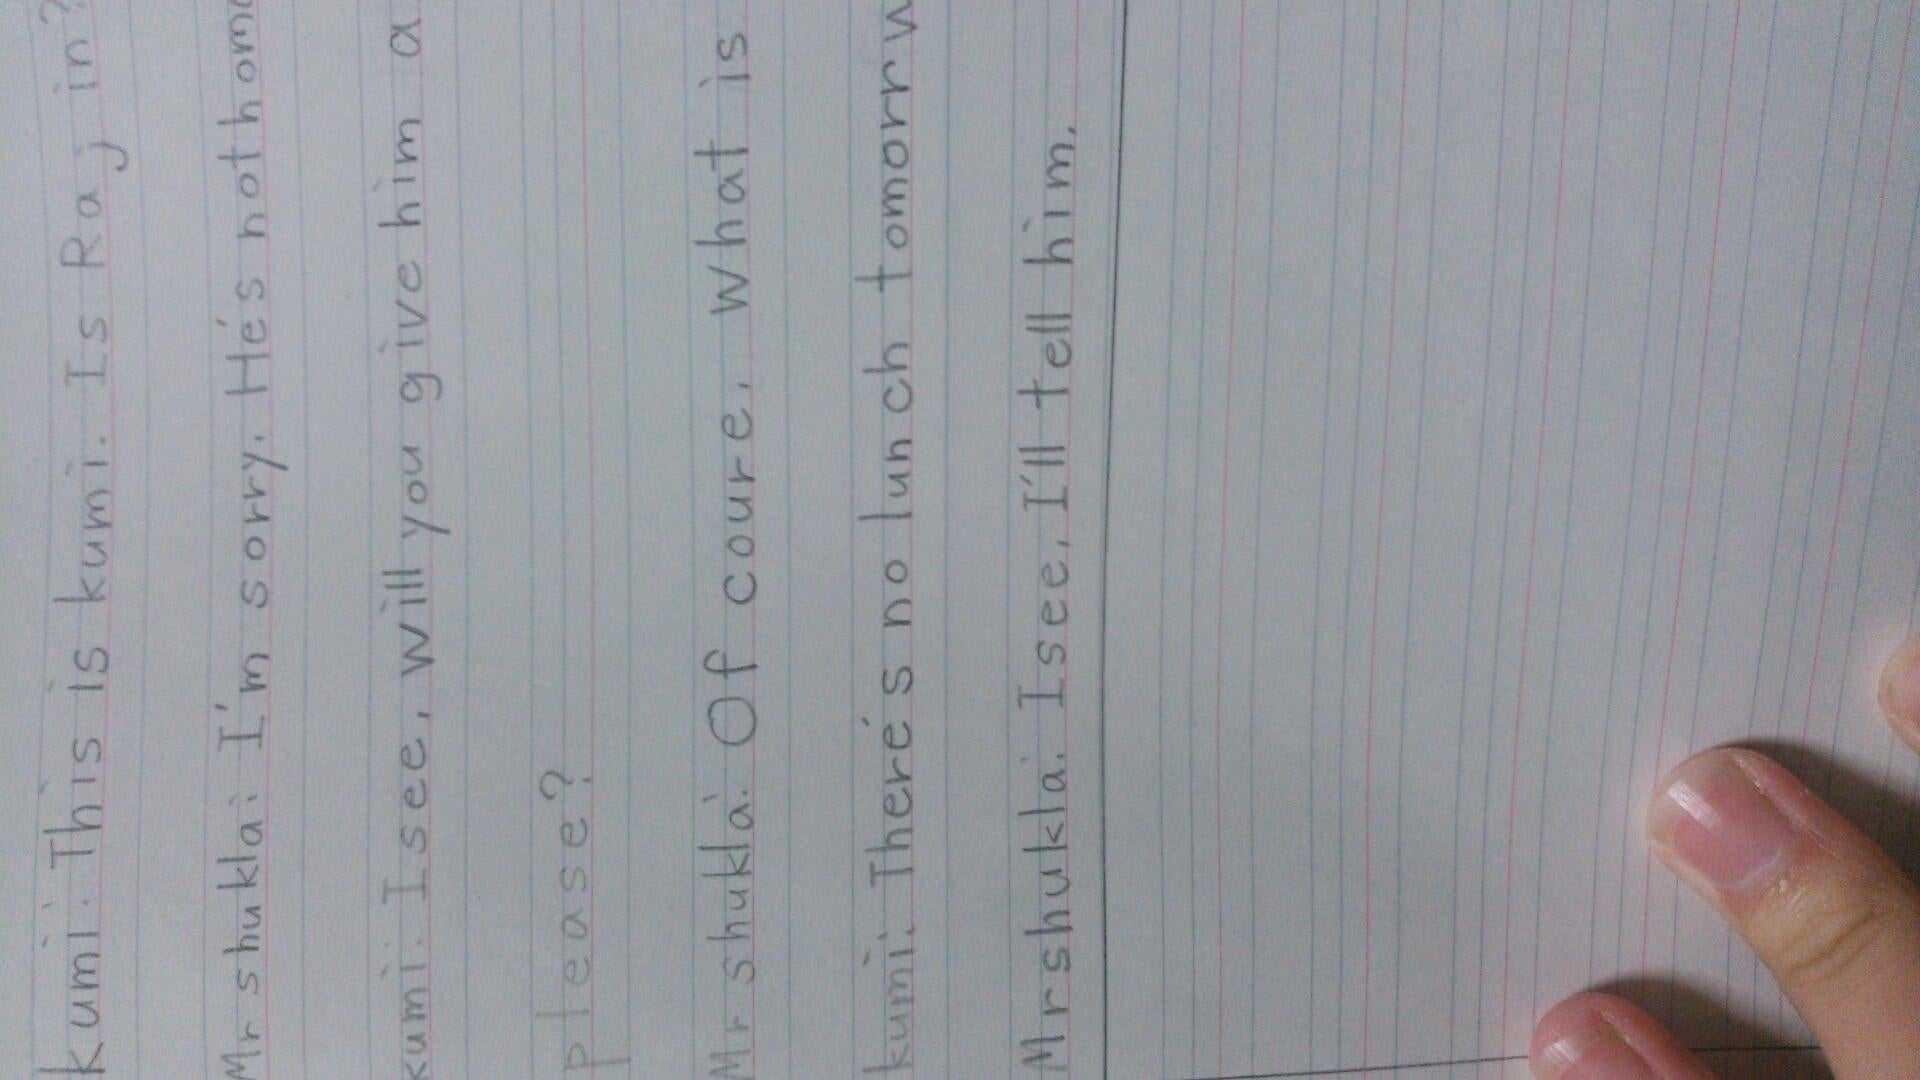 kumi: This is kumi. Is Raj in?
Mr shukla: I'm sorry. He's not hom
kumi: I see, will you give him a
please?
Mr shukla: Of coure, what is
kumi: There's no lunch tomorrw
Mr shukla: I see, I'll tell him.